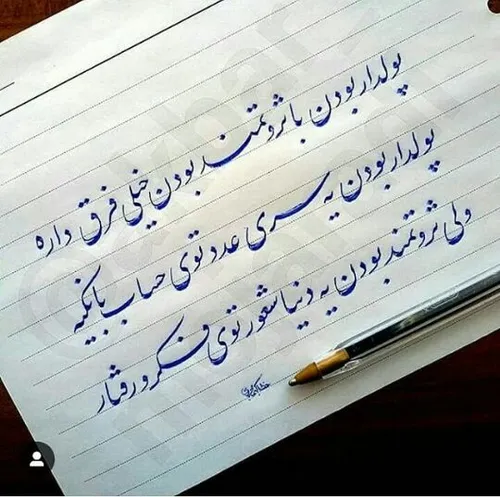 پولدار بودن با ثروتمند بودن خیلی فرق داره
پولدار بودن یه سری عدد توی حساب بانکیه
ولی ثروتمند بودن یه دنیا شعور توی فکر و رفتار